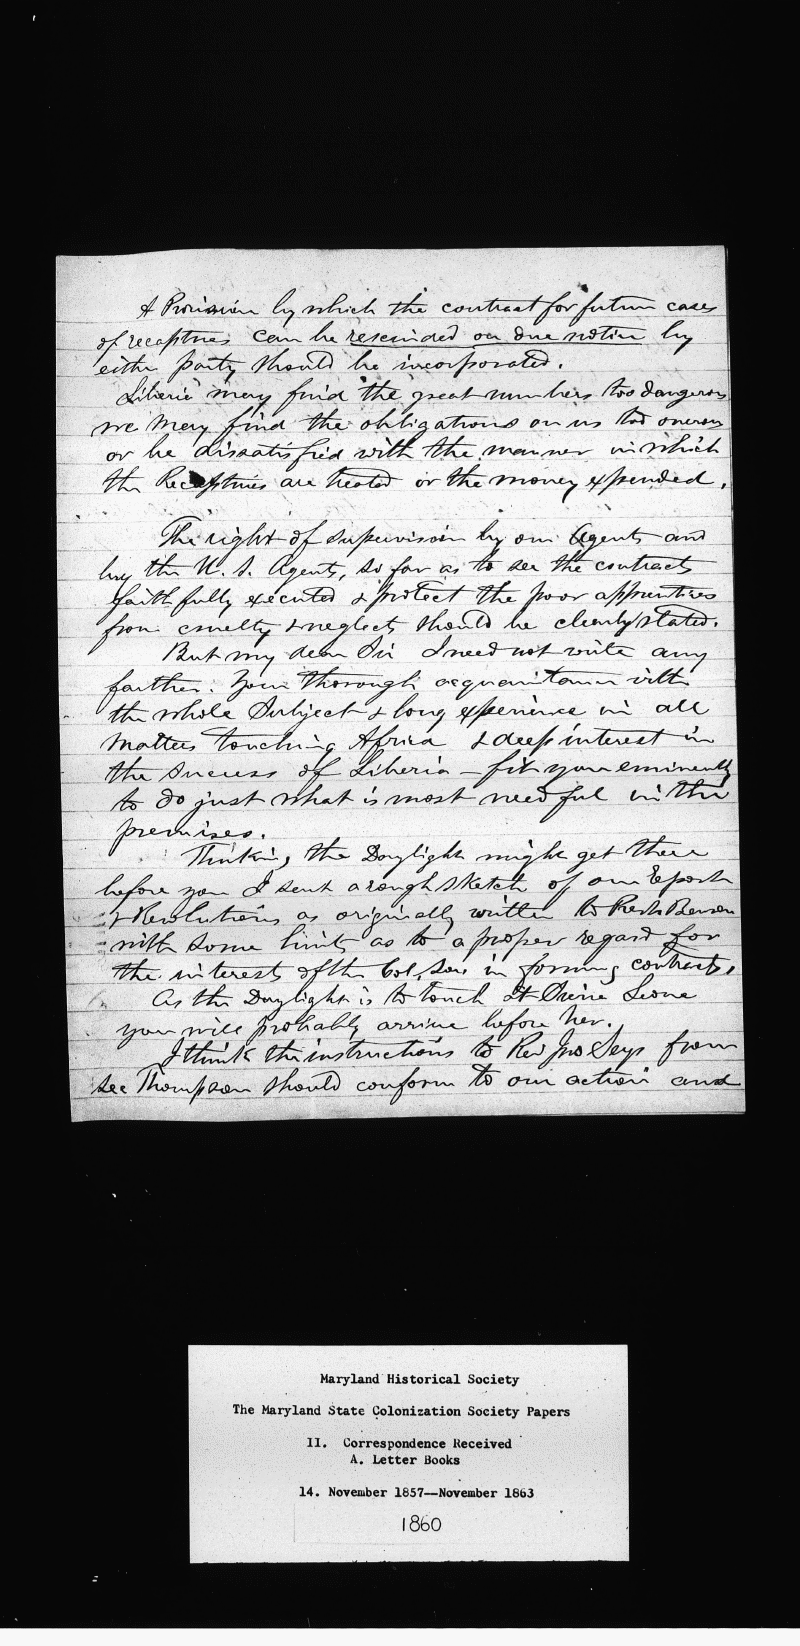 A Provision by which the contract for future cases
of recaptives can be rescinded on due notice by
either party should be incorporated.
Liberia may find the great numbers too dangerous
we may find the obligations on us too onerous
or be dissatisfied with the manner in which
the Recaptives are treated or the money expended.
The right of supervision by our Agents and
by the U. S. Agents, so far as to see the contracts
faithfully executed & protect the poor apprentices
from cruelty & neglect should be clearly stated.
But my dear Sir I need not write any
farther. Your thorough acquaintance with
the whole Subject & long experience in all
matters touching Africa & deep interest in
the success of Liberia – fit you eminently
to do just what is most needful in the
premises.
Thinking the Daylight might get there
before you I sent a rough sketch of our Report
& Resolutions as originally written to Prest Benson
with some hints as to a proper regard for
the interest of the Col. Soc in forming contracts.
As the Daylight is to touch at Sierra Leone
you will probably arrive before her.
I think the instructions to Rev Jno Seys from
Sec Thompson should conform to our action and
Maryland Historical Society
The Maryland State Colonization Society Papers
II. Correspondence Received
A. Letter Books
14. November 1857--November 1863
1860